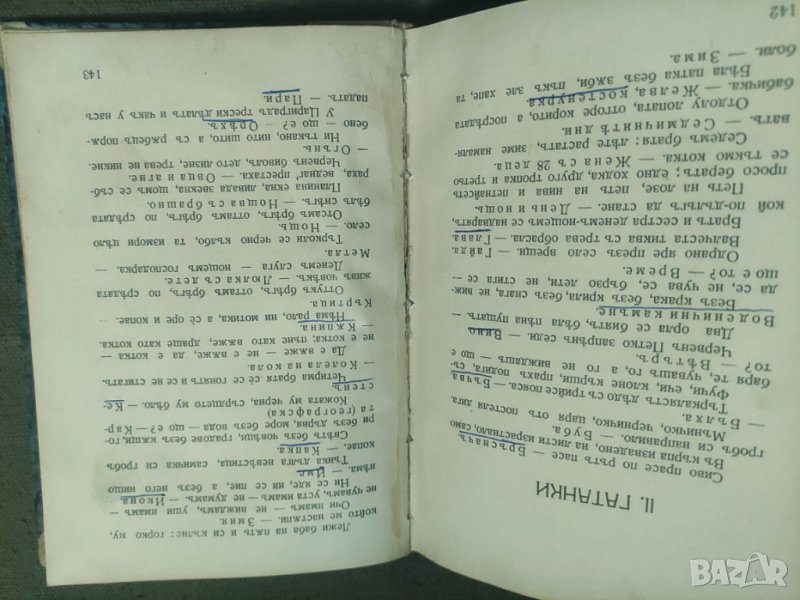 142
II. ГАТАНКИ
Сиво прасе по рътъ пасе — Бръсначъ.
Въ кърпа извадено, на листи израстнало, само,
гробъ си направило. — Буба.
Мъничко, черничко, царя отъ постеля дига
— Бълха.
Търкаластъ дѣдо съ трийсе пояса. — Бъчва.
Фуфи, ечи, клоне кърши, прахъ подига, съ-
баря те, чувашъ го, а го не виждашъ — що е
то? — Вѣтъръ.
Червенъ Петко запрѣнъ седи. — Вино.
Два орла се биятъ, бѣла пѣна пущатъ. —
Воденични камъне.
Безъ крака, безъ крила, безъ снага, не виж-
да се, не чува се, бързо лети, не стига се —
що е то? — Време.
Одрано яре презъ село врещи. — Гайда.
Валчеста тиква съ трева обрасла. — Глава.
Братъ и сестра денемъ-нощемъ се надварятъ,
кой по-дългъ да стане. — День и нощь.
Петь на лозе, петь на нива и петнайсеть
просо бератъ; едно ходжа, друго тропа и трето
се тъкмо котка. — Жена съ 28 деца.
Седемъ братя: лѣте растатъ, зиме намаля-
ватъ. — Седмичнитѣ дни.
Отдолу лопата, отгоре корито, а посрѣдата
бабичка. — Желва, костенурка.
Бѣла патка безъ зѫби, пъкъ зле хапе, та
боли. — Зима.
Лежи баба на пѫть и си кълне: горко му,
който ме настѫпи. — Змия.
Очи имамъ — не виждамъ, уши имамъ —
не чувамъ, уста имамъ — не думамъ. — Икона.
Ни се яде, ни се пие, а безъ него нищо
нѣма. — Име.
Тънка дълга невѣстица, самичка си гробъ
копае. — Капка.
Свѣтъ безъ човѣци, градове безъ кѫщи, го-
ри безъ дърва, море безъ вода — що е? — Кар-
та (географска)
Кожата му черна, сърдцето му бѣло. — Ке-
стенъ
Четирма братя се сѐ гонятъ и се не стигатъ
— Колела на кола.
Да е вяже — не е вяже, да е котка —
не е котка: пъне като вяже, драще като котка.
— Кѫпина.
Нѣма рало, ни мотика, а сѐ оре и копае. —
Къртица.
Оттукъ брѣгъ, оттамъ брѣгъ, по срѣдата
живъ човѣкъ. — Люлка съ дете.
Денемъ слуга — нощемъ господарка. —
Метла.
Търколи се черно кълбо, та измори цѣло
село. — Нощь.
Отсамъ брѣгъ, оттамъ брѣгъ, по срѣдата
бѣлъ снѣгъ. — Нощва съ брашно.
Планина екна, ливада звекна, щомъ се съб-
раха, веднага преварятъ. — Овци и агне.
Червенъ биволъ, дето лизне, трева не никне.
— Огънь.
Ни тъкано, нито шито, а съ рѫбецъ порѫ-
бено — що е? — Орѣхъ.
У Цариградъ трески дѣлатъ и чакъ у насъ
падатъ. — Пари.
143
BAZAR